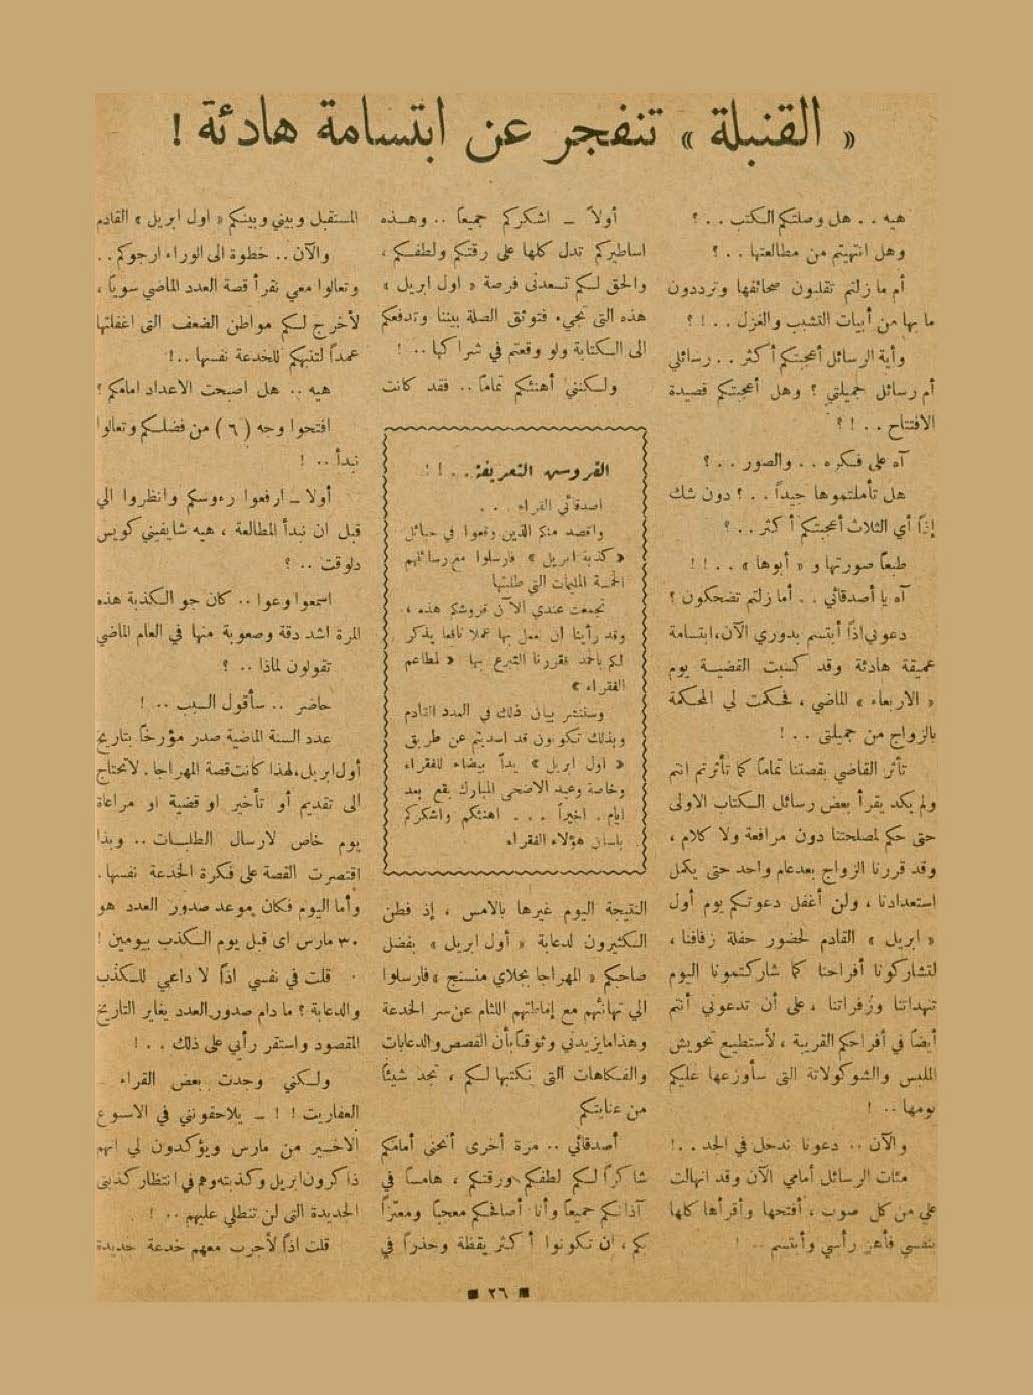 « القنبلة » تنفجر عن ابتسامة هادئة !
هيه . . هل وصلتكم الكتب . . ؟
وهل انتهيتم من مطالعتها . . ؟
أم ما زلتم تقلبون صحائفها وترددون
ما بها من أبيات التشبب والغزل . . ! ؟
وأية الرسائل أعجبتكم أكثر . . رسائلي
أم رسائل جميلتي ؟ وهل أعجبتكم قصيدة
الافتتاح . . ! ؟
آه على فكره . . والصور . . ؟
هل تأملتموها جيداً . . ؟ دون شك
إذاً أي الثلاث أعجبتكم أكثر . . ؟
طبعاً صورتها و « أبوها » . . ! !
آه يا أصدقائي . . أما زلتم تضحكون ؟
دعوني اذاً أبتسم بدوري الآن ، ابتسامة
عميقة هادئة وقد كسبت القضية يوم
« الاربعاء » الماضي ، فحكمت لي المحكمة
بالزواج من جميلتى . . !
تأثر القاضي بقصتنا تماماً كما تأثرتم انتم
ولم يكد يقرأ بعض رسائل الكتاب الاولى
حتى حكم لمصلحتنا دون مرافعة ولا كلام ،
وقد قررنا الزواج بعد عام واحد حتى يكمل
استعدادنا ، ولن أغفل دعوتكم يوم أول
« ابريل » القادم لحضور حفلة زفافنا ،
لتشاركونا أفراحنا كما شاركتمونا اليوم
تنهداتنا وزفراتنا ، على أن تدعوني أنتم
أيضاً في أفراحكم القريبة ، لأستطيع تحويش
الملبس والشوكولاتة التى سأوزعها عليكم
يومها . . !
والآن . . دعونا ندخل في الجد . . !
مئات الرسائل أمامي الآن وقد انهالت
علي من كل صوب ، أفتحها وأقرأها كلها
بنفسي فأهز رأسي وأبتسم . . !
أولاً – اشكركم جميعاً . . وهذه
اساطيركم تدل كلها على رقتكم ولطفكم ،
والحق لكم تسعدنى فرصة « اول ابريل »
هذه التى تجيء فتوثق الصلة بيننا وتدفعكم
الى الكتابة ولو وقعتم في شراكها . . !
ولكنني أهنئكم تماماً . . فقد كانت
القروش التعريفة . . ! !
اصدقائي القراء . . .
واقصد منكم الذين وقعوا في حبائل
« كذبة ابريل » فارسلوا مع رسائلهم
الخمسة المليمات التي طلبتها
تجمعت عندي الآن قروشكم هذه ،
وقد رأينا ان نعمل بها عملا نافعا يذكر
لكم بالحمد فقررنا التبرع بها « لمطاعم
الفقراء »
وسننشر بيان ذلك في العدد القادم
وبذلك تكونون قد اسديتم عن طريق
« اول ابريل » يداً بيضاء للفقراء
وخاصة وعيد الاضحى المبارك يقع بعد
ايام . اخيراً . . . اهنئكم واشكركم
بلسان هؤلاء الفقراء
النتيجة اليوم غيرها بالامس ، إذ فطن
الكثيرون لدعابة « أول ابريل » بفضل
صاحبكم « المهراجا بجلاي منستج » فارسلوا
الي تهانئهم مع إماطتهم اللثام عن سر الخدعة
وهذا ما يزيدني وثوقاً بأن القصص والدعابات
والفكاهات التى نكتبها لكم ، تجد شيئاً
من عنايتكم
أصدقائي . . مرة أخرى أنحنى أمامكم
شاكراً لكم لطفكم ورقتكم ، هامساً في
آذانكم جميعاً وأنا أصافحكم معجباً ومعتزاً
بكم ، ان تكونوا أكثر يقظة وحذراً في
المستقبل وبيني وبينكم « اول ابريل » القادم
والآن . . خطوة الى الوراء ارجوكم . .
وتعالوا معي نقرأ قصة العدد الماضي سوياً ،
لأخرج لكم مواطن الضعف التى اغفلتها
عمداً لتنبهكم للخدعة نفسها . . !
هيه . . هل اصبحت الاعداد امامكم ؟
افتحوا وجه ( ٦ ) من فضلكم وتعالوا
نبدأ . . !
أولا – ارفعوا رءوسكم وانظروا الي
قبل ان نبدأ المطالعة ، هيه شايفيني كويس
دلوقت . . ؟
اسمعوا وعوا . . كان جو الكذبة هذه
المرة اشد دقة وصعوبة منها في العام الماضي
تقولون لماذا . . ؟
حاضر . . سأقول السبب . . !
عدد السنة الماضية صدر مؤرخاً بتاريخ
أول ابريل ، لهذا كانت قصة المهراجا . لا تحتاج
الى تقديم أو تأخير او قضية او مراعاة
يوم خاص لارسال الطلبات . . وبذا
اقتصرت القصة على فكرة الخدعة نفسها .
وأما اليوم فكان موعد صدور العدد هو
٣٠ مارس اى قبل يوم الكذب بيومين !
قلت في نفسي اذاً لا داعي للكذب
والدعابة ؟ ما دام صدور العدد يغاير التاريخ
المقصود واستقر رأيي على ذلك . . !
ولكني وجدت بعض القراء –
العفاريت ! ! – يلاحقونني في الاسبوع
الاخير من مارس ويؤكدون لي انهم
ذاكرون ابريل وكذبته وهم في انتظار كذبتى
الجديدة التى لن تنطلي عليهم . . !
قلت اذاً لأجرب معهم خدعة جديدة
■ ٢٦ ■